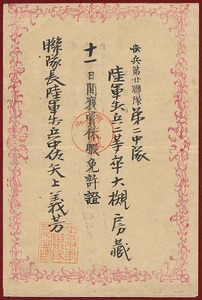 歩兵第廿聯隊第二中隊
陸軍歩兵二等卒大槻房藏
十一日間褒賞休暇免許證
聯隊長陸軍歩兵中佐矢上義芳